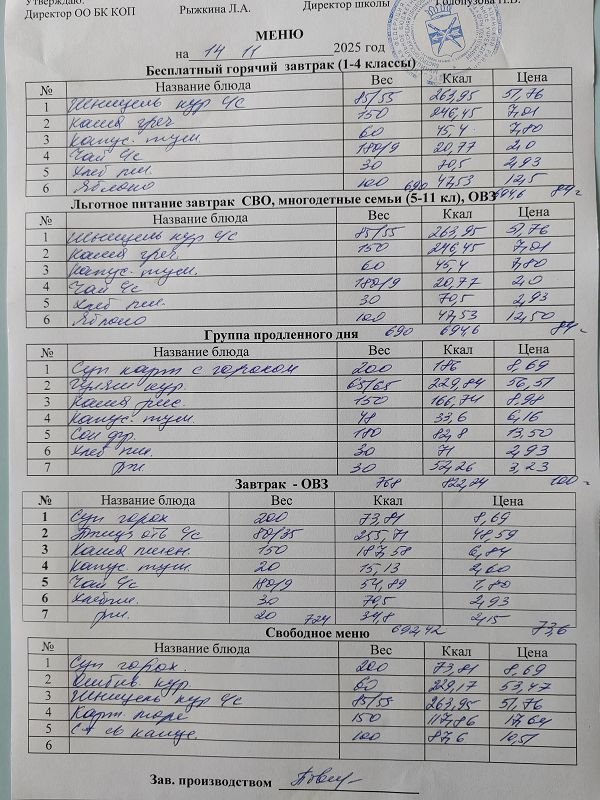 Утверждаю:
Директор ОО БК КОП Рыжкина Л.А. Директор школы Голопузова Н.В.
МЕНЮ
на 14 11 2025 год
Бесплатный горячий завтрак (1-4 классы)
№ Название блюда Вес Ккал Цена
1 Шницель кур с/с 85/55 263,95 51,76
2 Каша греч 150 246,45 7,01
3 Капус. туш. 60 45,4 7,80
4 Чай с/с 180/9 20,77 2,0
5 Хлеб пш. 30 70,5 2,93
6 Яблоко 100 47,53 12,5
690 694,6 84-
Льготное питание завтрак СВО, многодетные семьи (5-11 кл), ОВЗ
№ Название блюда Вес Ккал Цена
1 Шницель кур с/с 85/55 263,95 51,76
2 Каша греч. 150 246,45 7,01
3 Капус. туш. 60 45,4 7,80
4 Чай с/с 180/9 20,77 2,0
5 Хлеб пш. 30 70,5 2,93
6 Яблоко 100 47,53 12,50
690 694,6 84-
Группа продленного дня
№ Название блюда Вес Ккал Цена
1 Суп карт с горохом 200 186 8,69
2 Гуляш кур. 65/65 229,84 56,51
3 Каша рис. 150 166,74 8,98
4 Капус. туш. 48 33,6 6,16
5 Сок фр. 180 82,8 13,50
6 Хлеб пш. 30 71 2,93
7 рж 30 52,26 3,23
768 822,24 100-
Завтрак - ОВЗ
№ Название блюда Вес Ккал Цена
1 Суп горох 200 73,81 8,69
2 Птица отв с/с 80/35 255,71 48,59
3 Каша пшен. 150 187,58 6,84
4 Капус. туш. 20 15,13 2,60
5 Чай с/с 180/9 54,89 1,80
6 Хлеб пш. 30 70,5 2,93
7 рж. 20 34,8 2,15
724 692,42 73,6
Свободное меню
№ Название блюда Вес Ккал Цена
1 Суп горох. 200 73,81 8,69
2 кур 60 229,17 53,47
3 Шницель кур с/с 85/55 263,95 51,76
4 Карт. пюре 150 117,86 17,64
5 С-т св капус. 100 87,6 10,51
6
Зав. производством